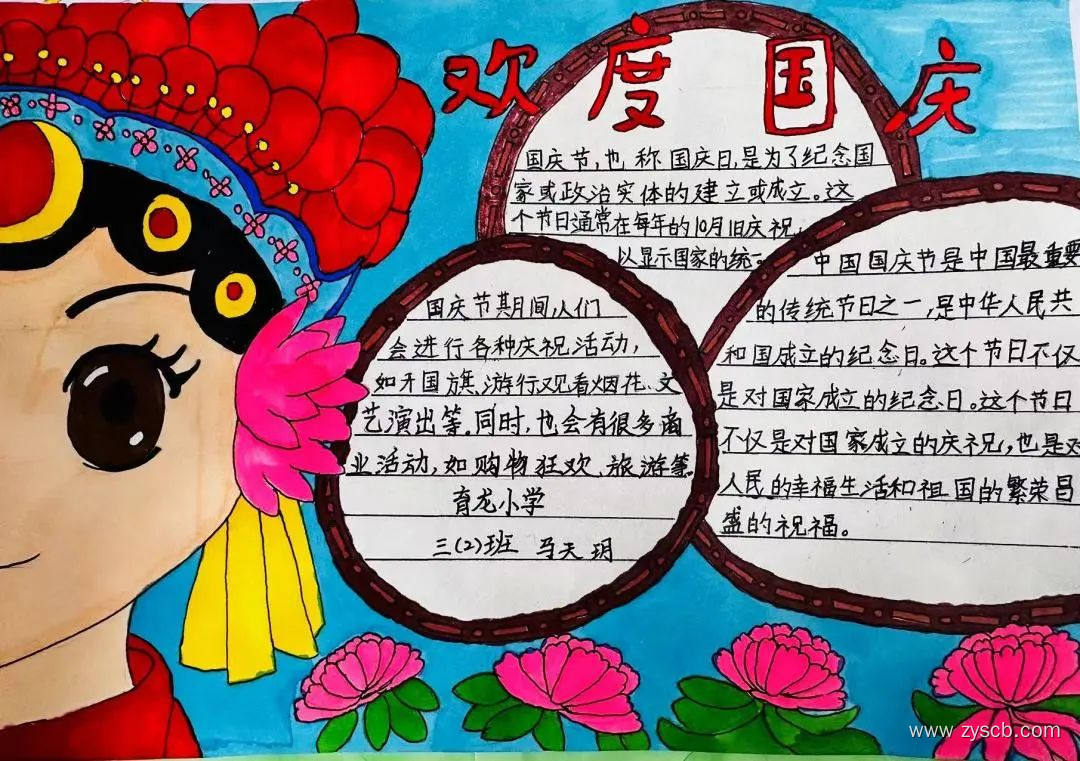 欢度国庆
国庆节,也称国庆日,是为了纪念国
家或政治实体的建立或成立。这
个节日通常在每年的10月1日庆祝,
以显示国家的统一
中国国庆节是中国最重要
的传统节日之一,是中华人民共
和国成立的纪念日。这个节日不仅
是对国家成立的纪念日。这个节日
不仅是对国家成立的庆祝,也是对
人民的幸福生活和祖国的繁荣昌
盛的祝福。
国庆节其月间,人们
会进行各种庆祝活动,
如升国旗、游行、观看烟花、文
艺演出等。同时,也会有很多商
业活动,如购物狂欢、旅游等。
育龙小学
三(2)班 马天玥
www.zyscb.com